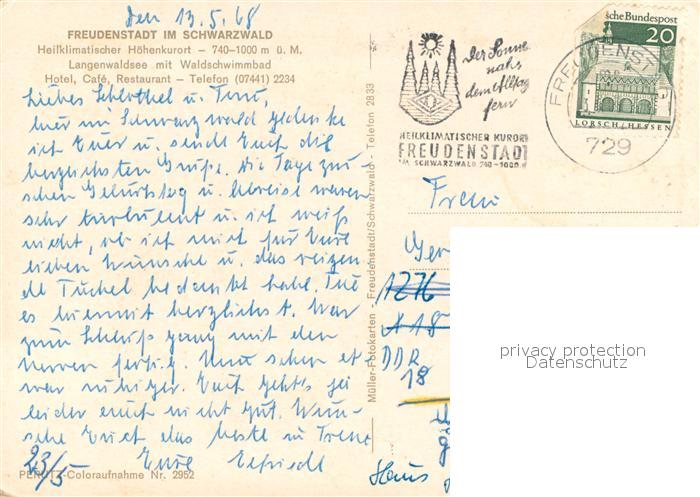 den 13.5.68
FREUDENSTADT IM SCHWARZWALD
Heilklimatischer Höhenkurort – 740–1000 m ü. M.
Langenwaldsee mit Waldschwimmbad
Hotel, Café, Restaurant – Telefon (07441) 2234
Liebes u. Tine,
hier im Schwarzwald gedenke
ich Euer u. sende Euch die
herzlichsten Grüße. Die Tage zwi-
schen Geburtstag u. Abreise waren
sehr turbulent u. ich weiß
nicht, ob ich mich für Eure
lieben Wünsche u. das reizen-
de Tüchel bedankt habe. Tue
es hiermit herzlichst. War
zum Schluß ganz mit den
Nerven fertig. Nun schon et-
was ruhiger. Euch geht's ja
leider auch nicht gut. Wün-
sche Euch das beste u. Treue
23/5 Eure
PERUTZ-Coloraufnahme Nr. 2952
Müller-Fotokarten - Freudenstadt/Schwarzwald - Telefon 28 33
Der Sonne
nah
dem Alltag
fern
HEILKLIMATISCHER KURORT
FREUDENSTADT
IM SCHWARZWALD 740-1000 M
FREUDENST
729
sche Bundespost
20
LORSCH/HESSEN
Frau
Ger
1276
A 18
DDR
18
Haus
privacy protection
Datenschutz